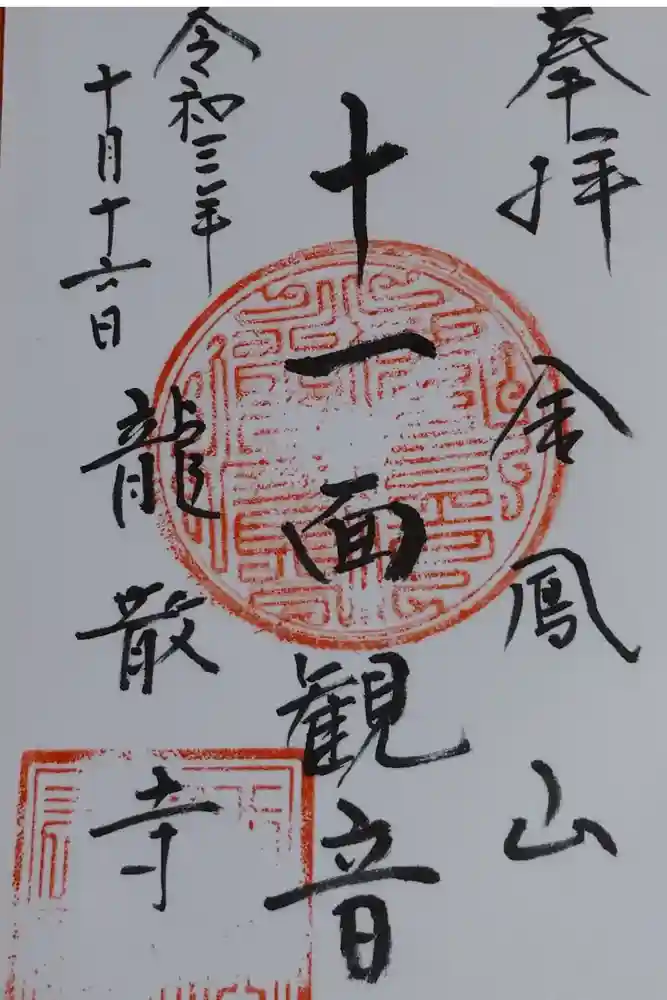 奉拝
金鳳山
十一面観音
令和三年
十月十六日
龍散寺